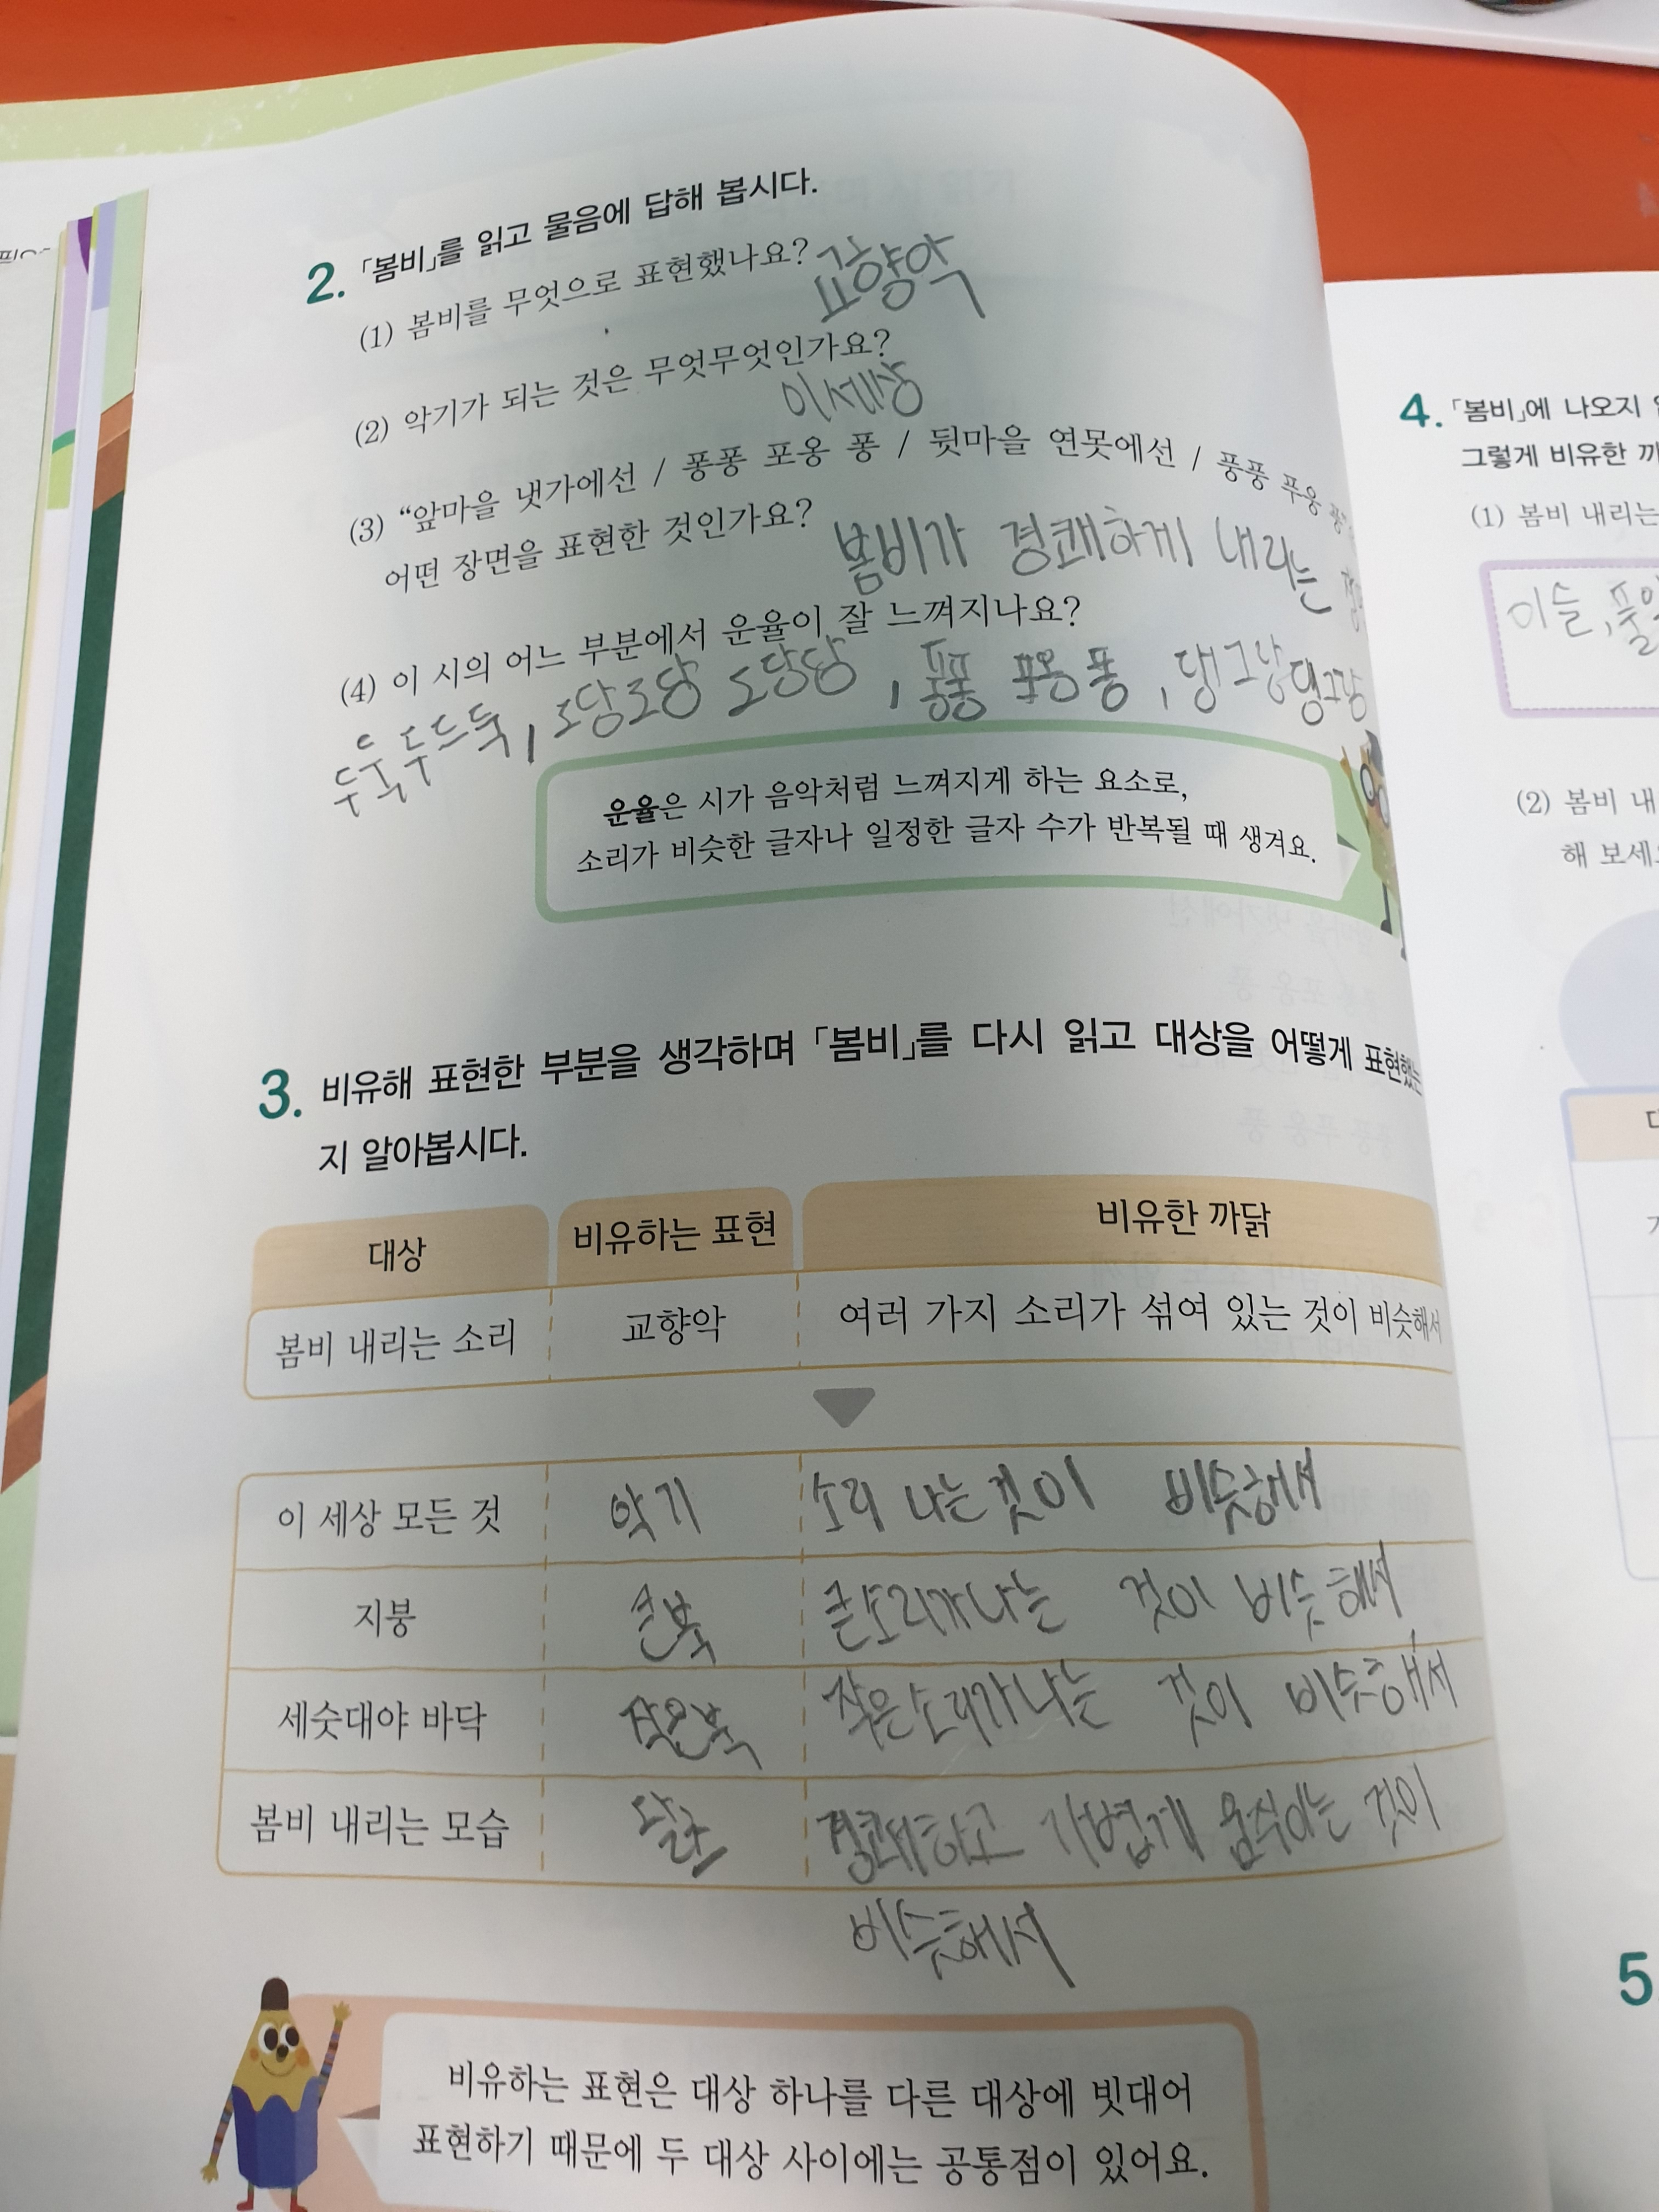 2. 「봄비」를 읽고 물음에 답해 봅시다.
(1) 봄비를 무엇으로 표현했나요? 교향악
(2) 악기가 되는 것은 무엇무엇인가요?
이세상
(3) “앞마을 냇가에선 / 퐁퐁 포옹 퐁 / 뒷마을 연못에선 / 풍풍 푸웅 풍
어떤 장면을 표현한 것인가요? 봄비가 경쾌하게 내리는
(4) 이 시의 어느 부분에서 운율이 잘 느껴지나요?
두둑 두드둑, 도당도당 도당당, 퐁퐁 포옹 퐁, 댕그랑댕그랑
운율은 시가 음악처럼 느껴지게 하는 요소로,
소리가 비슷한 글자나 일정한 글자 수가 반복될 때 생겨요.
3. 비유해 표현한 부분을 생각하며 「봄비」를 다시 읽고 대상을 어떻게 표현했는
지 알아봅시다.
대상 비유하는 표현 비유한 까닭
봄비 내리는 소리 교향악 여러 가지 소리가 섞여 있는 것이 비슷해서
이 세상 모든 것 악기 소리 나는 것이 비슷해서
지붕 큰북 큰소리가나는 것이 비슷해서
세숫대야 바닥 작은북 작은소리가나는 것이 비슷해서
봄비 내리는 모습 왈츠 경쾌하고 가볍게 움직이는 것이
비슷해서
비유하는 표현은 대상 하나를 다른 대상에 빗대어
표현하기 때문에 두 대상 사이에는 공통점이 있어요.
4. 「봄비」에 나오지
그렇게 비유한
(1) 봄비 내리는
이슬,
(2) 봄비 내
해 보세
5